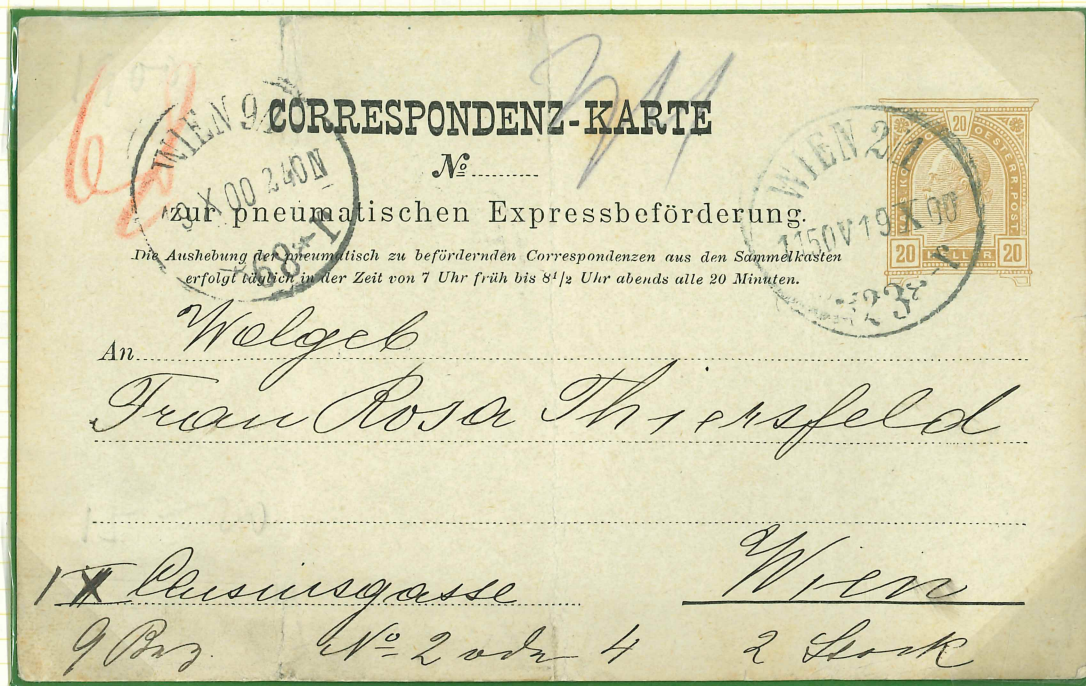 CORRESPONDENZ-KARTE
№
zur pneumatischen Expressbeförderung.
Die Aushebung der pneumatisch zu befördernden Correspondenzen aus den Sammelkasten
erfolgt täglich in der Zeit von 7 Uhr früh bis 8½ Uhr abends alle 20 Minuten.
WIEN 9
X 00 240N
68
WIEN 2/1
1150V 19 X 00
KAIS. KOENIGL. OESTERR. POST
20
20 HELLER 20
An Wolgeb
Frau Rosa Thiersfeld
IX Clusiusgasse Wien
9 Bez. № 2 oder 4 2 Stock